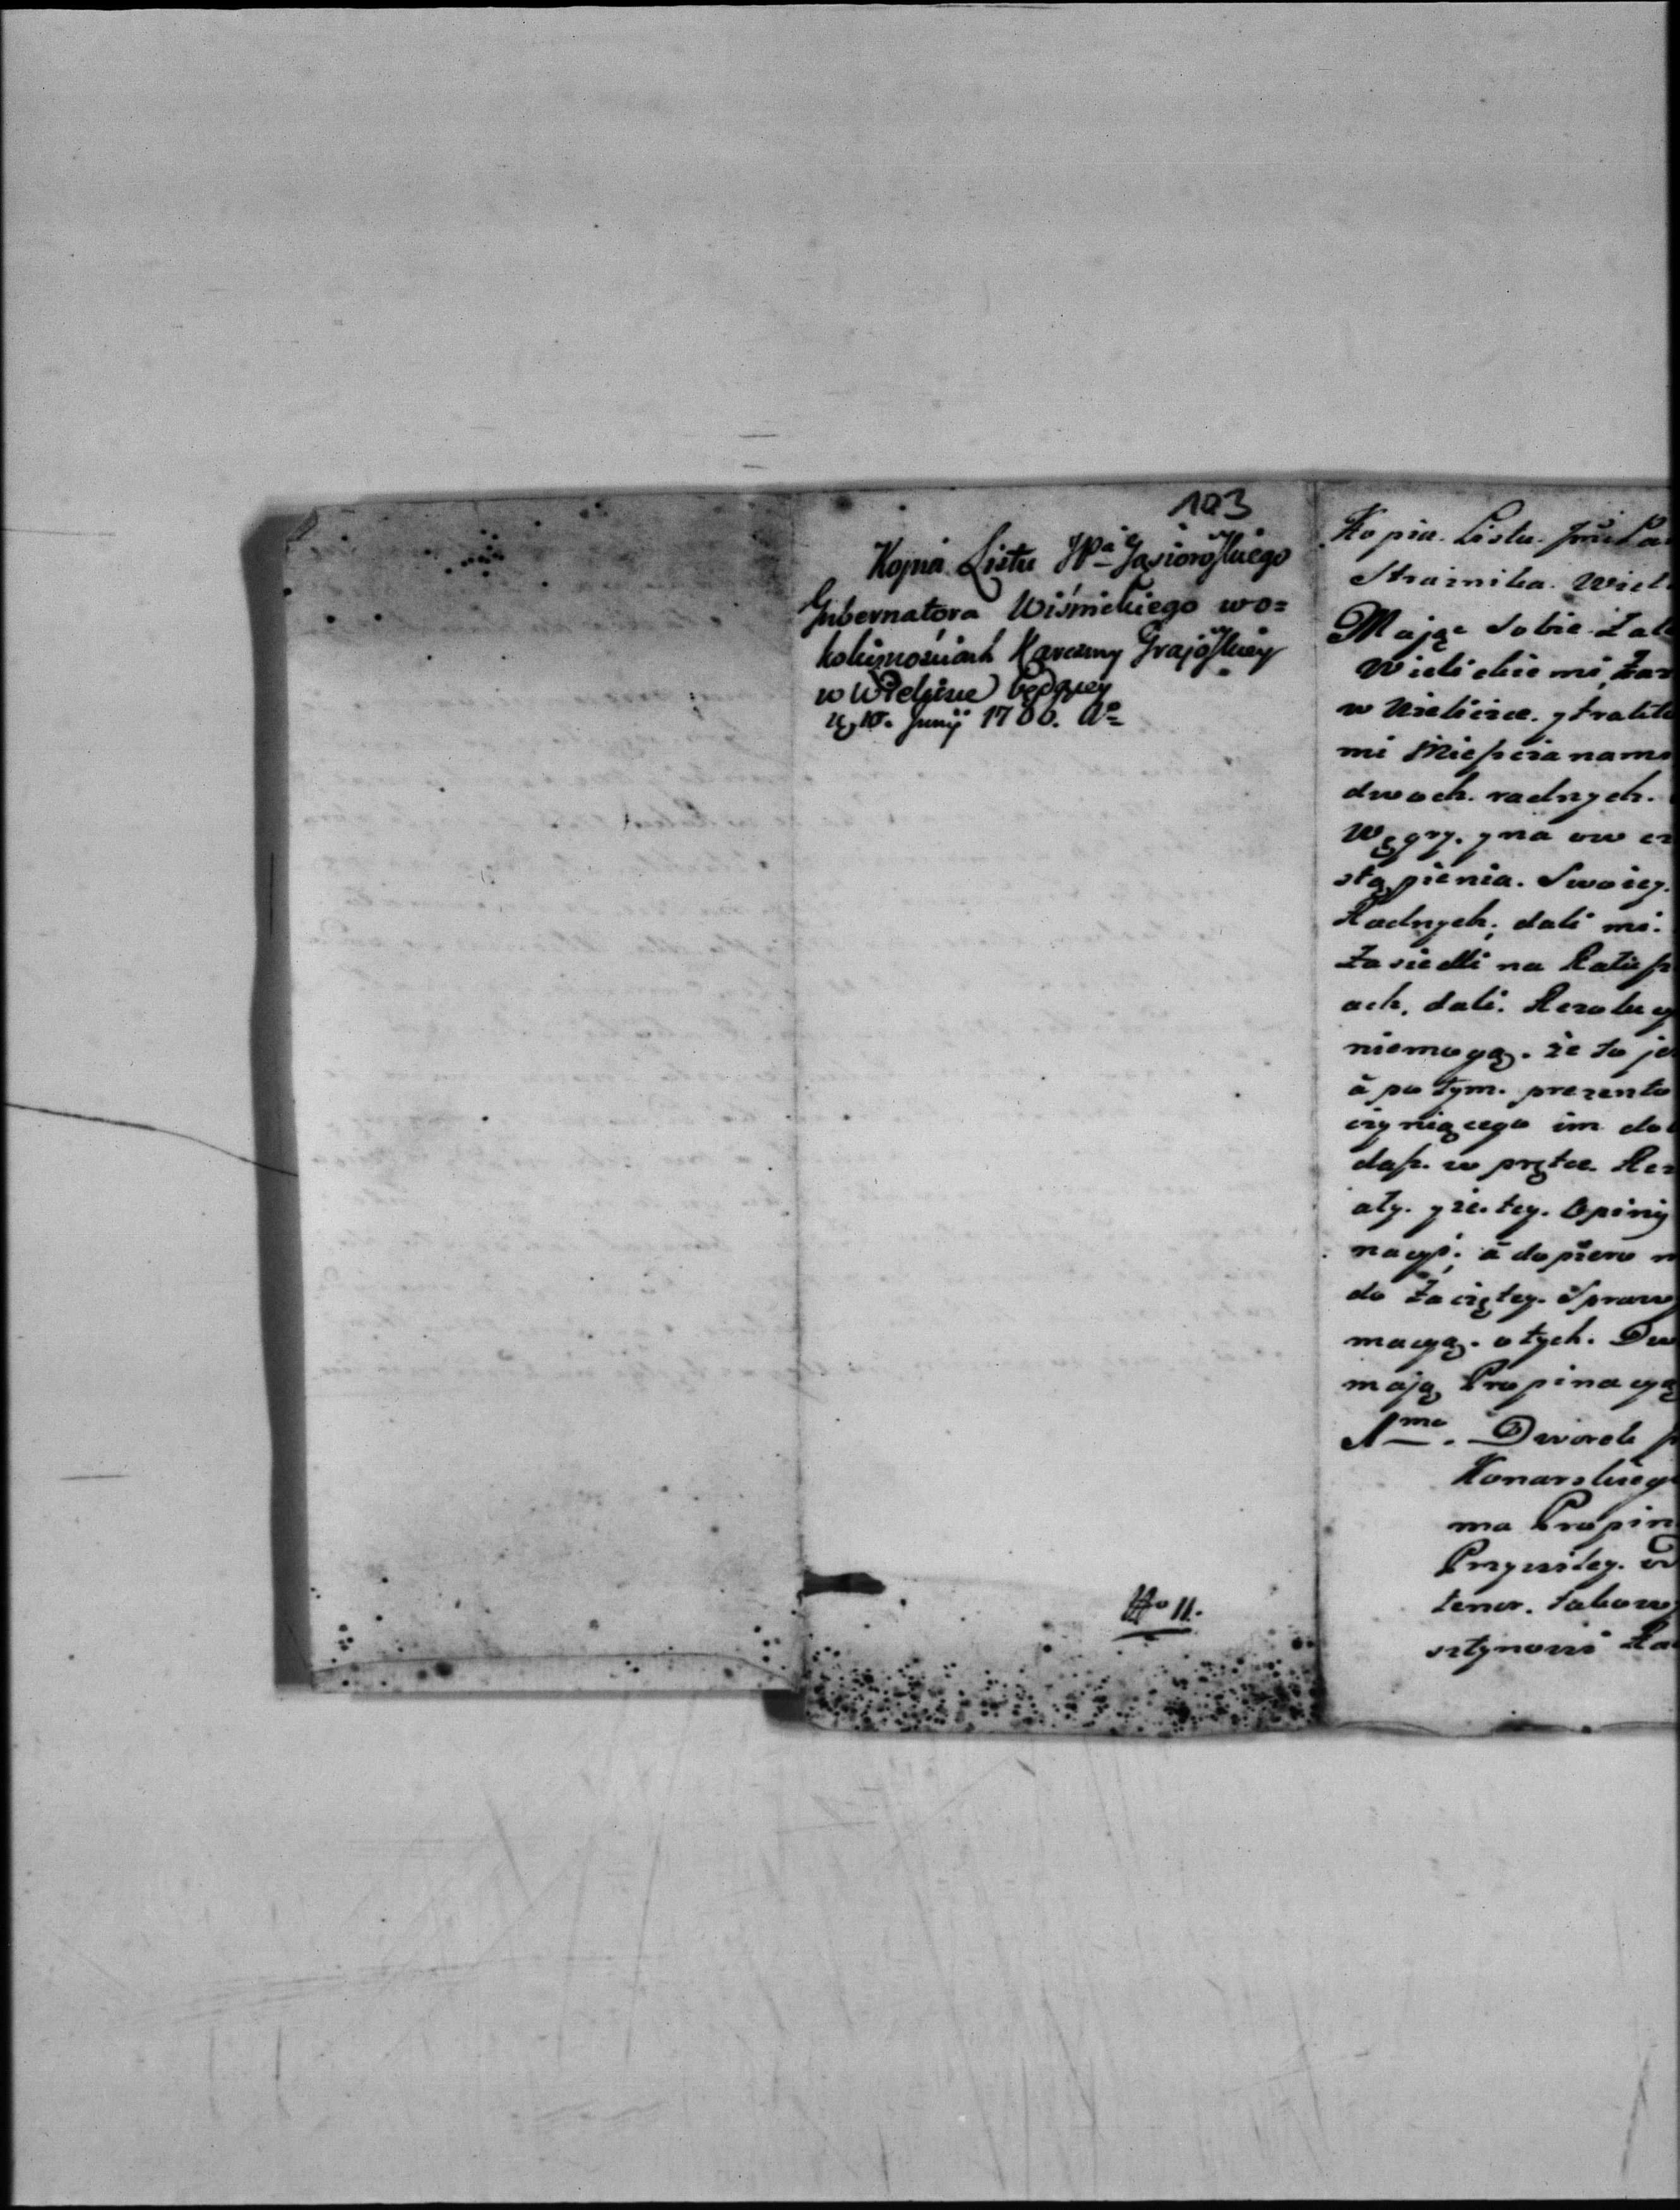 103
Kopia Listu JPa Gąsiorowskiego
Gubernatora Wiśnickiego wo=
kolicznościach Karczmy Grajowskiey
w Wieliczce będącey
10. Junij 1760. Ao
No 11.
Kopia. Listu.
Strażnika. Wiel
Mając Sobie Zale
Wielickiemi,
w Wieliczce. y trakto
mi Mieszczanam
dwoch. radnych.
Węgry. y na ow cz
stąpienia. Swoiey.
Radnych; dali mi.
Zasiedli na Ratusz
ach, dali. Rezolucy
niemogą. że to je
à potym. prezento
czyniącego im do
dasz. w prętce. Rez
aty. y że. tey. Opiniy
nacyi; à dopiero n
do Zaciętey. Sprawy
macyą. o tych. Dw
mają Propinacyą
1mo. Dworek p
Konarskieg
ma Propin
Przywiley. w
tenor. takowy
sztynowi Ra